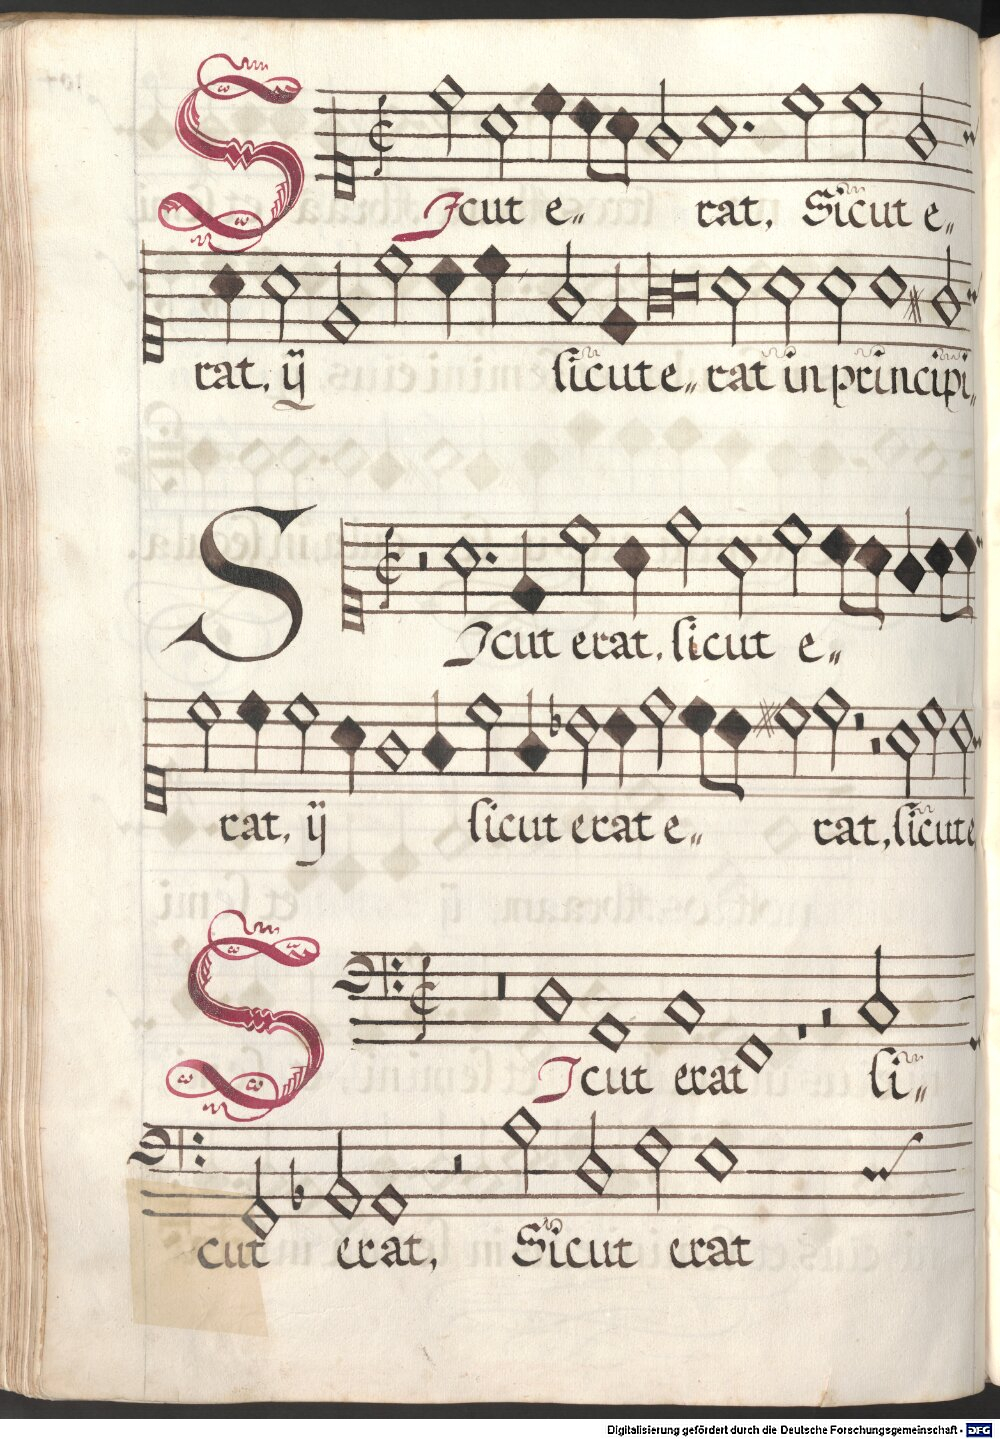 SIcut e„ rat, Sicut e„
rat, ij sicut e„ rat in principi„
SIcut erat, sicut e„
rat, ij sicut erat e„ rat, sicut e
SIcut erat si„
cut erat, Sicut erat
Digitalisierung gefördert durch die Deutsche Forschungsgemeinschaft - DFG